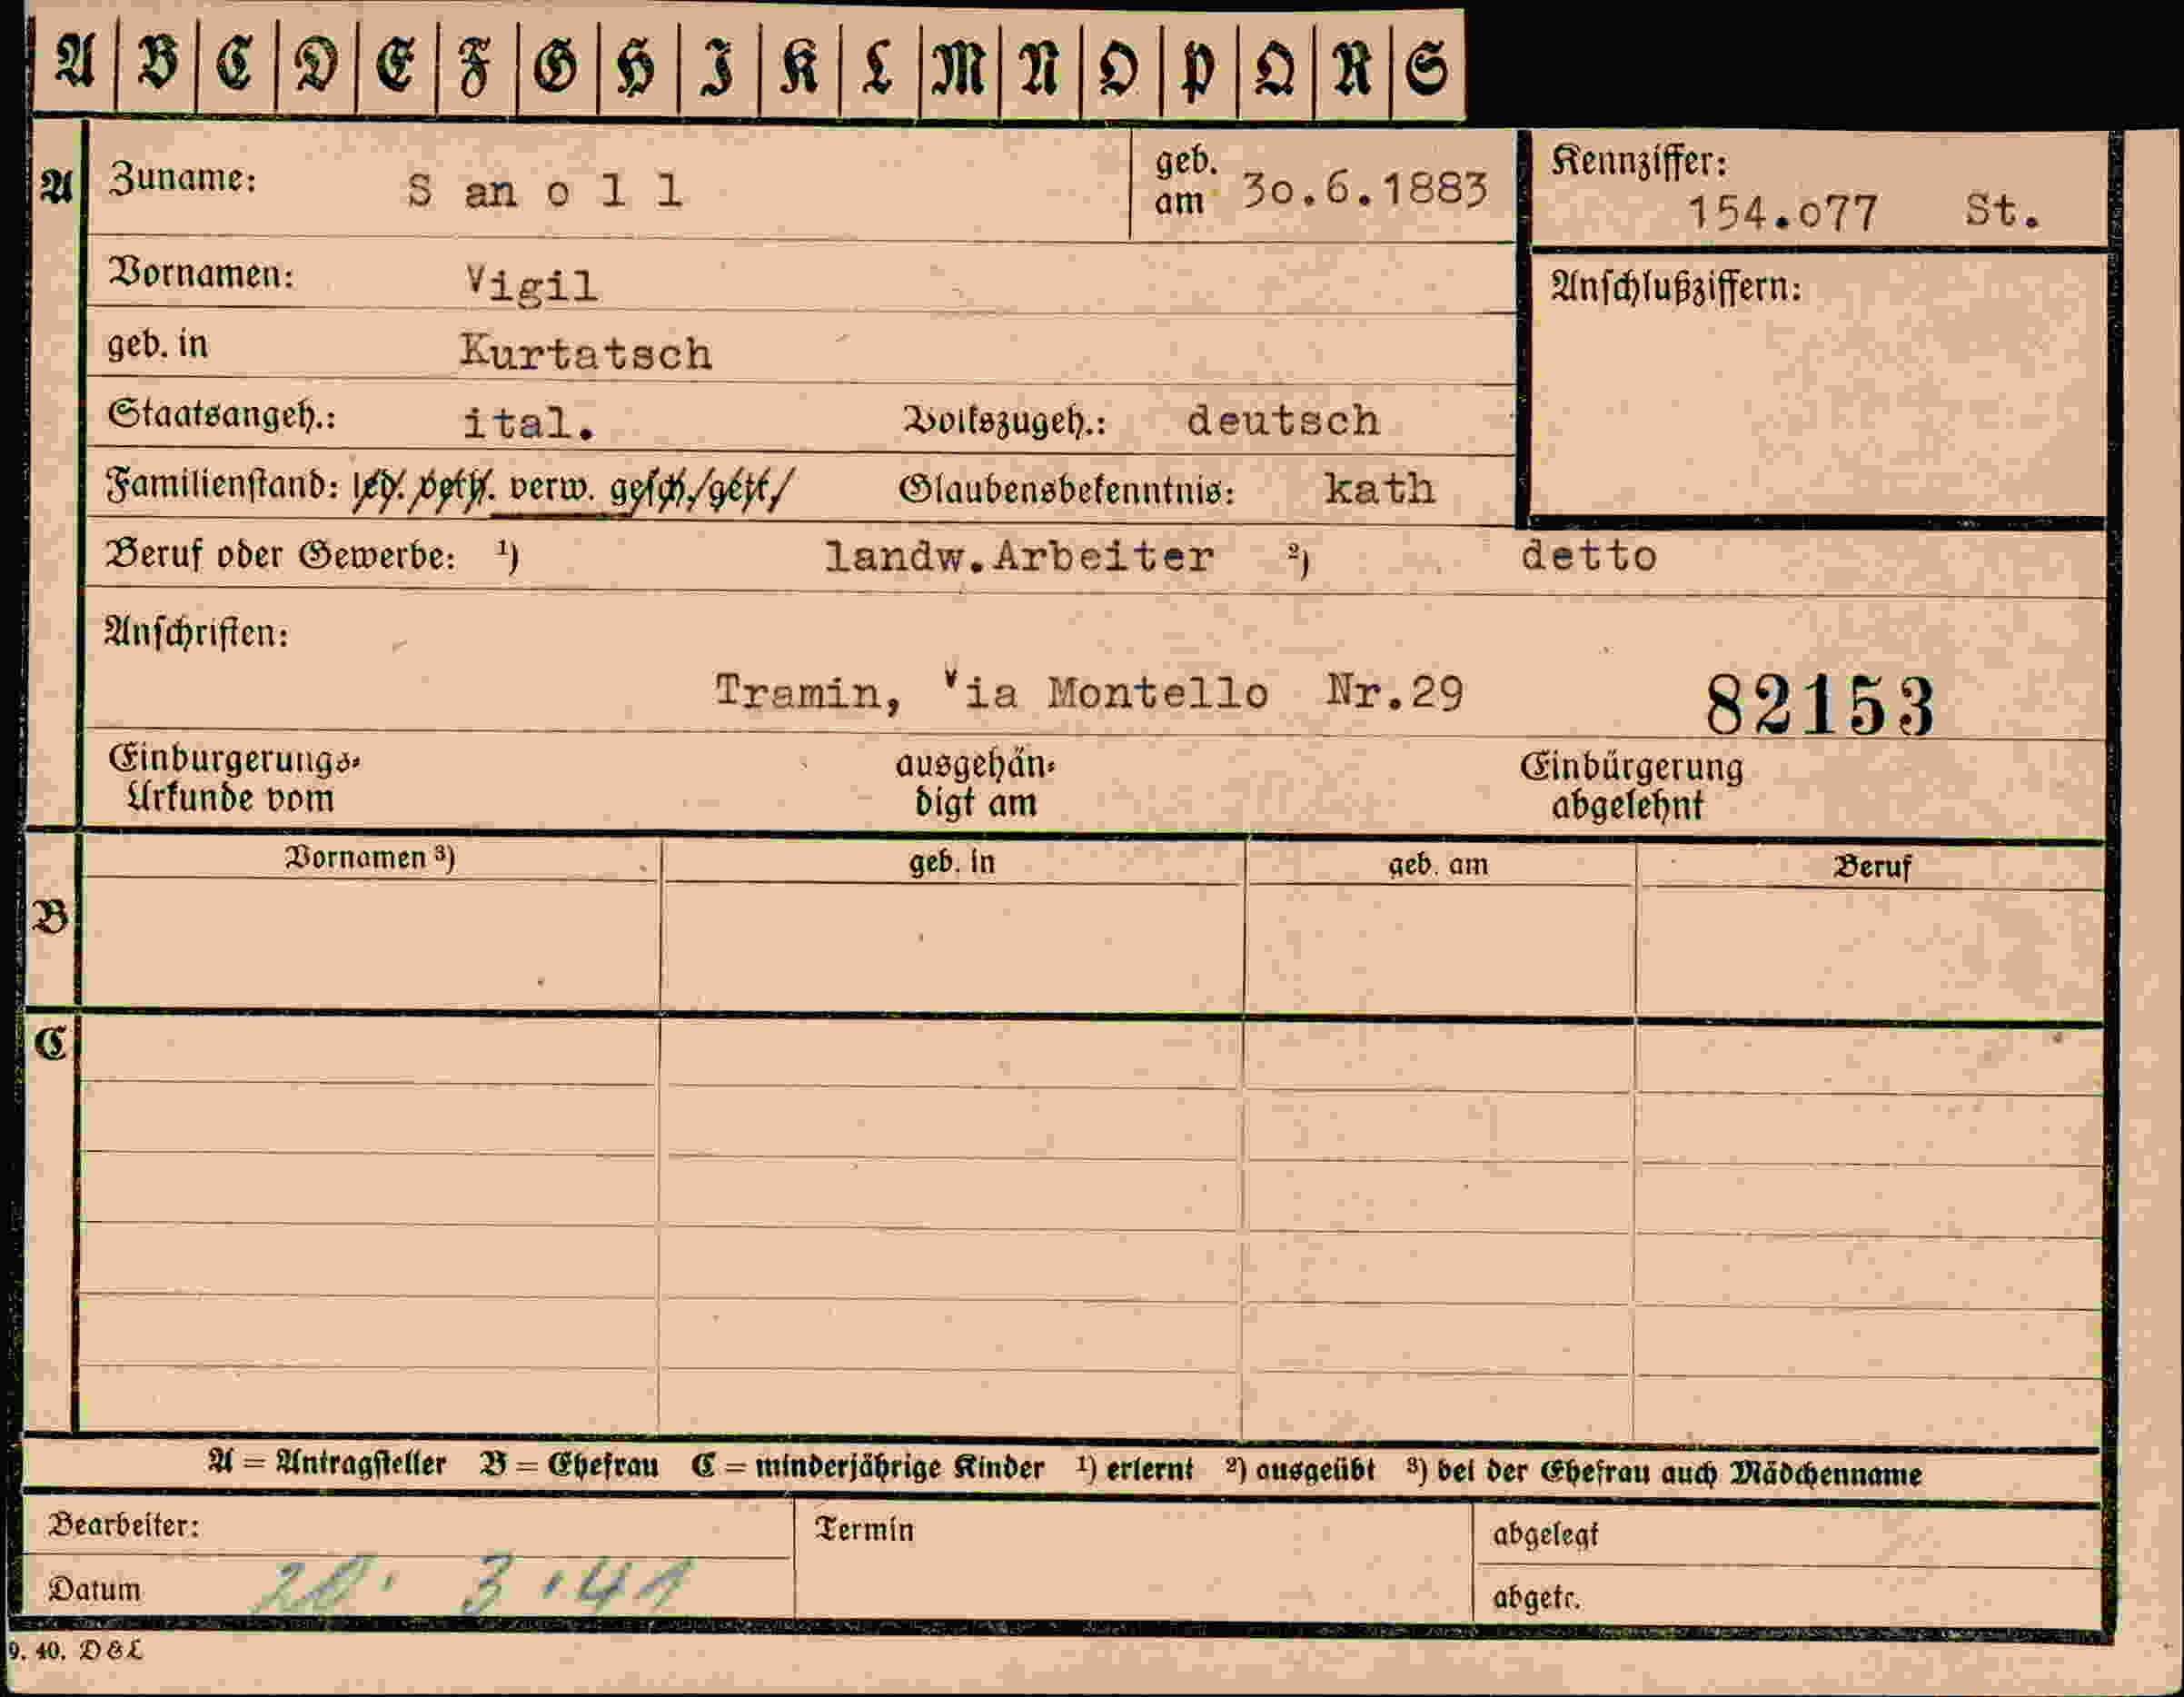 A B C D E F G H I K L M N O P Q R S
A Zuname: S an o l l geb. am 30.6.1883 Kennziffer: 154.077 St.
Vornamen: Vigil Anschlußziffern:
geb. in Kurtatsch
Staatsangeh.: ital. Volkszugeh.: deutsch
Familienstand: led. verh. verw. gesch./getr./ Glaubensbekenntnis: kath
Beruf oder Gewerbe: ¹) landw.Arbeiter ²) detto
Anschriften:
Tramin, Via Montello Nr.29 82153
Einbürgerungs= ausgehän= Einbürgerung
Urkunde vom digt am abgelehnt
Vornamen ³) geb. in geb. am Beruf
B
C
A = Antragsteller B = Ehefrau C = minderjährige Kinder ¹) erlernt ²) ausgeübt ³) bei der Ehefrau auch Mädchenname
Bearbeiter: Termin abgelegt
Datum 20. 3.41 abgetr.
9. 40. D&L